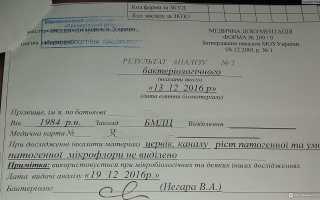 Код форми за ЗКУД
Код закладу за ЗКПО
МЕДИЧНА ДОКУМЕНТАЦІЯ
ФОРМА № 100 / 0
Затверджено наказом МОЗ України
№ 1
РЕЗУЛЬТАТ АНАЛІЗУ № 2
бактеріологічного
(вказати якого)
«13 12 2016 р»
(дата взяття біоматеріалу)
Прізвище, ім'я, по батькові
Вік 1984 р.н. Заклад БМДЦ Відділення
Медична карта №
При дослідженні вказати матеріал цервік. каналу ріст патогенної та умо
патогенної мікрофлори не виділено
Примітка: використовується при мікробіологічних та деяких інших дослідженнях
Дата видачі аналізу «19 12 2016р.»
Бактеріолог (Негара В.А.)